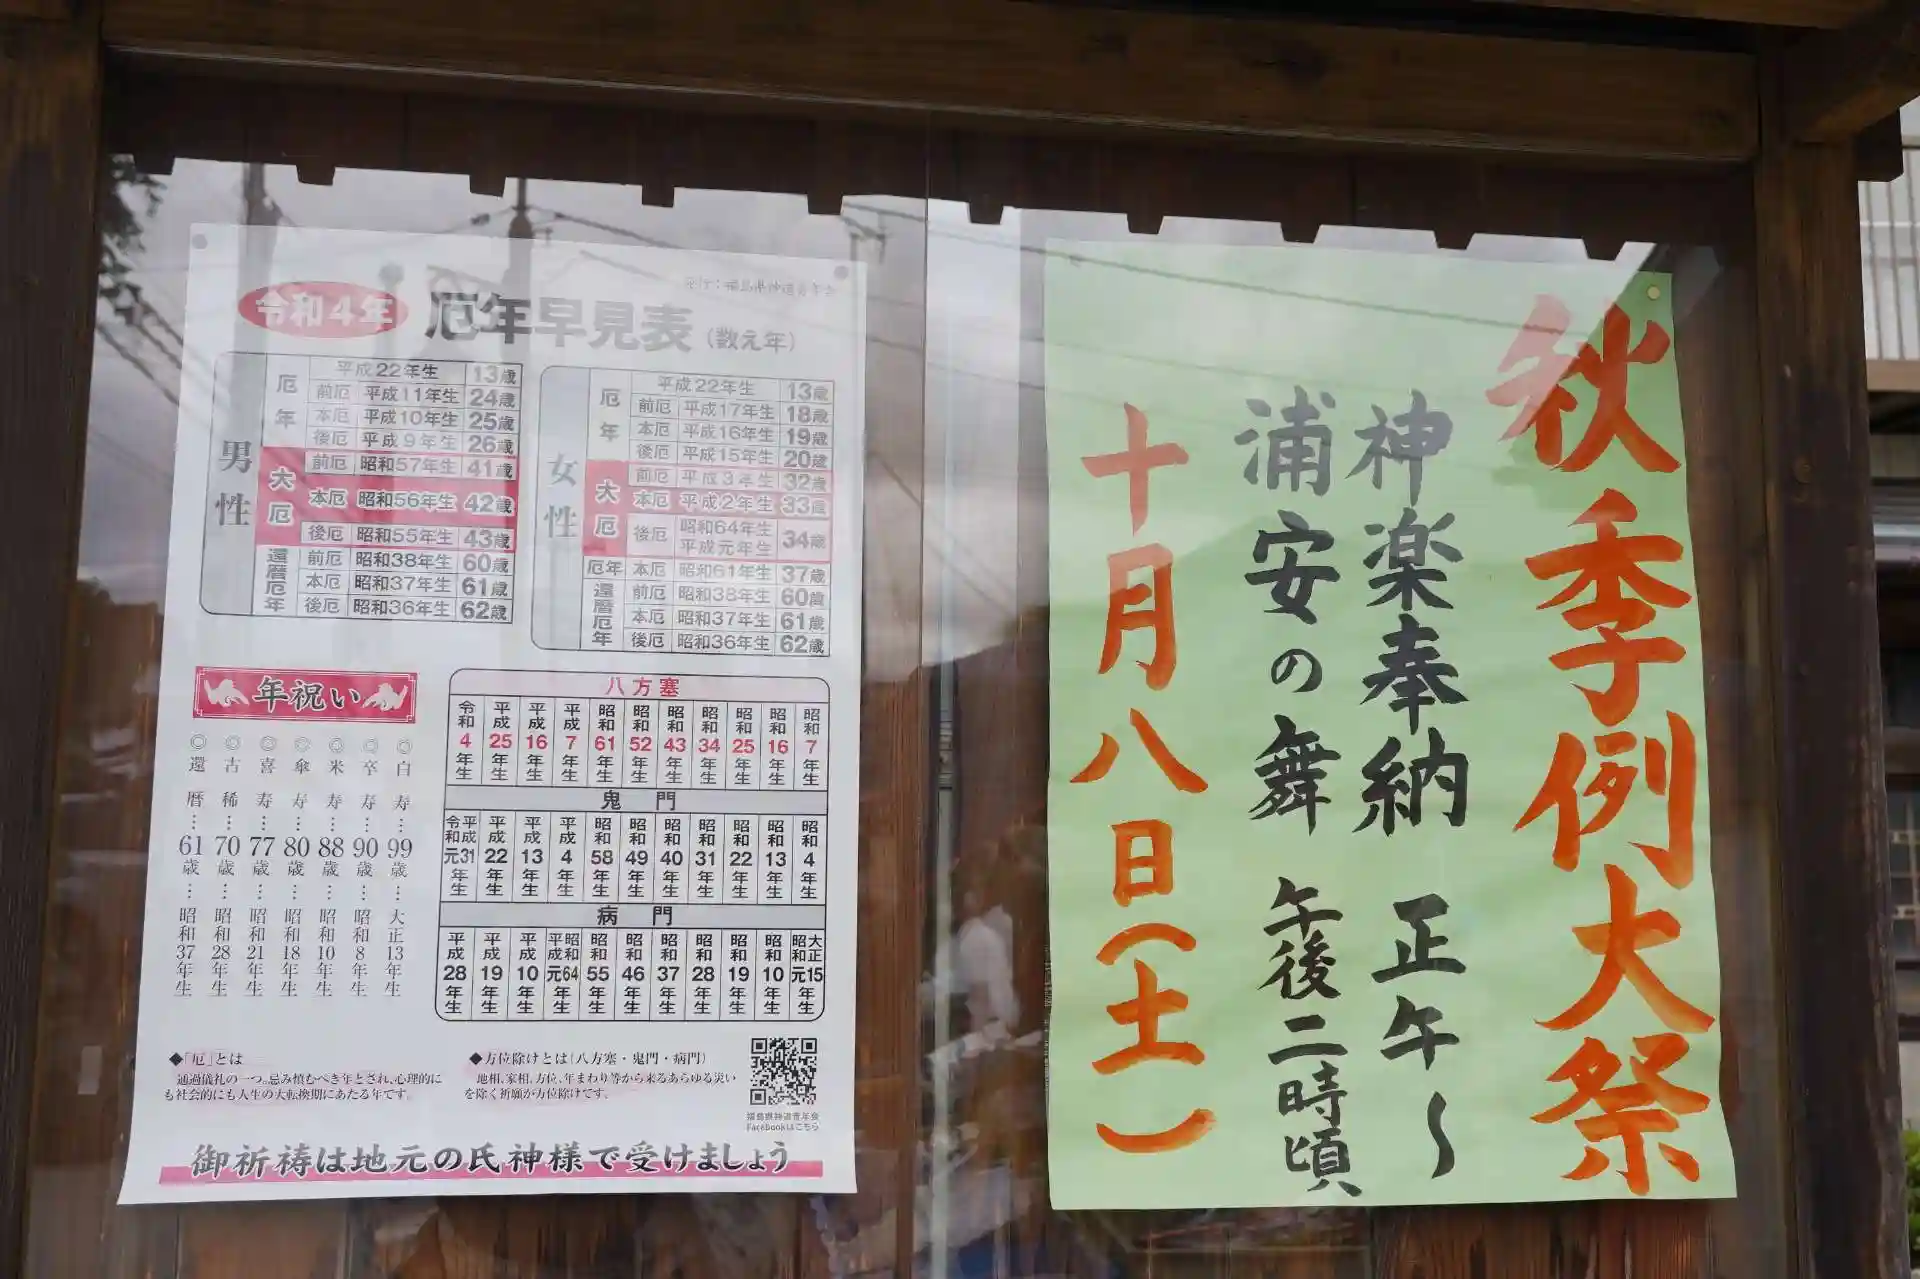 発行：福島県神道青年会
令和4年 厄年早見表（数え年）
男性
厄年 平成22年生 13歳
前厄 平成11年生 24歳
本厄 平成10年生 25歳
後厄 平成9年生 26歳
大厄 前厄 昭和57年生 41歳
本厄 昭和56年生 42歳
後厄 昭和55年生 43歳
還暦厄年 前厄 昭和38年生 60歳
本厄 昭和37年生 61歳
後厄 昭和36年生 62歳
女性
厄年 平成22年生 13歳
前厄 平成17年生 18歳
本厄 平成16年生 19歳
後厄 平成15年生 20歳
大厄 前厄 平成3年生 32歳
本厄 平成2年生 33歳
後厄 昭和64年生 平成元年生 34歳
厄年 本厄 昭和61年生 37歳
還暦厄年 前厄 昭和38年生 60歳
本厄 昭和37年生 61歳
後厄 昭和36年生 62歳
年祝い
◎還暦…61歳…昭和37年生
◎古稀…70歳…昭和28年生
◎喜寿…77歳…昭和21年生
◎傘寿…80歳…昭和18年生
◎米寿…88歳…昭和10年生
◎卒寿…90歳…昭和8年生
◎白寿…99歳…大正13年生
八方塞
令和4年生 平成25年生 平成16年生 平成7年生 昭和61年生 昭和52年生 昭和43年生 昭和34年生 昭和25年生 昭和16年生 昭和7年生
鬼門
令和元平成31年生 平成22年生 平成13年生 平成4年生 昭和58年生 昭和49年生 昭和40年生 昭和31年生 昭和22年生 昭和13年生 昭和4年生
病門
平成28年生 平成19年生 平成10年生 平成元昭和64年生 昭和55年生 昭和46年生 昭和37年生 昭和28年生 昭和19年生 昭和10年生 昭和元大正15年生
◆「厄」とは
通過儀礼の一つ。忌み慎むべき年とされ、心理的に
も社会的にも人生の大転換期にあたる年です。
◆方位除けとは（八方塞・鬼門・病門）
地相、家相、方位、年まわり等から来るあらゆる災い
を除く祈願が方位除けです。
福島県神道青年会
Facebookはこちら
御祈祷は地元の氏神様で受けましょう
秋季例大祭
神楽奉納 正午〜
浦安の舞 午後二時頃
十月八日（土）